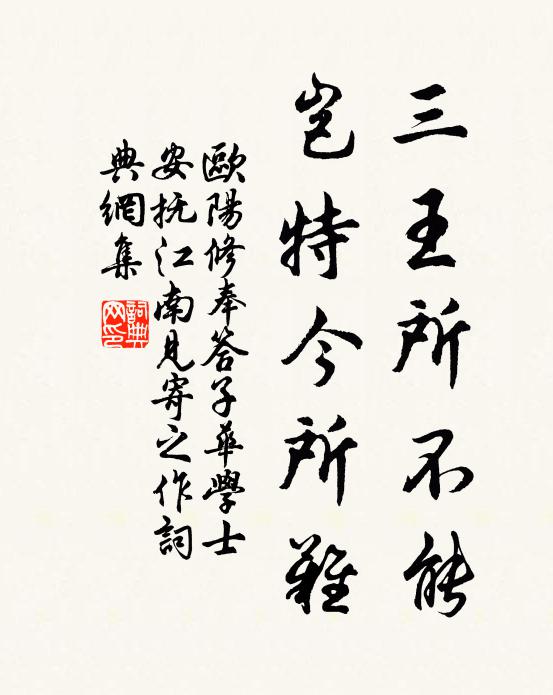 三王所不能
豈特今所難
歐陽修奉答子華學士
安撫江南見寄之作詞
典網集
詞典
网印